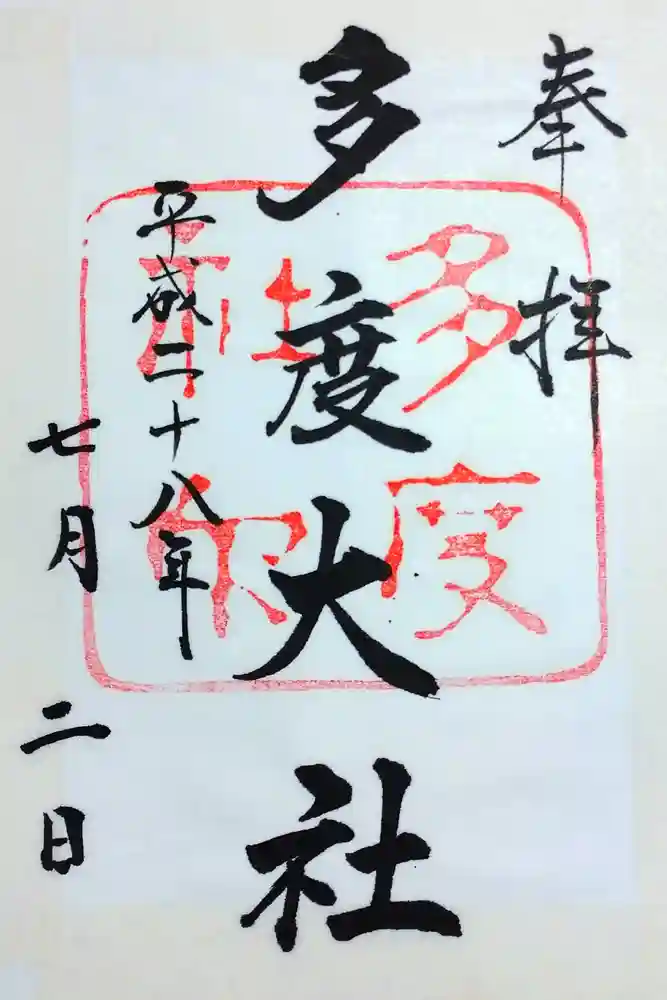 奉拝
多度大社
平成二十八年
七月二日
多度
社印